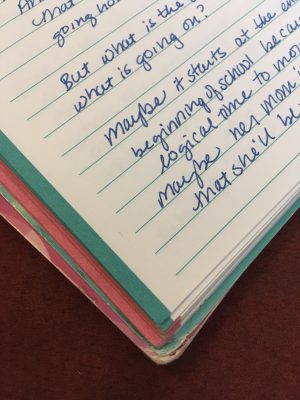 that
going ha
But what is the
what is going on?
maybe it starts at the en
beginning of school becau
logical time to mo
maybe her mom i
that she'll be